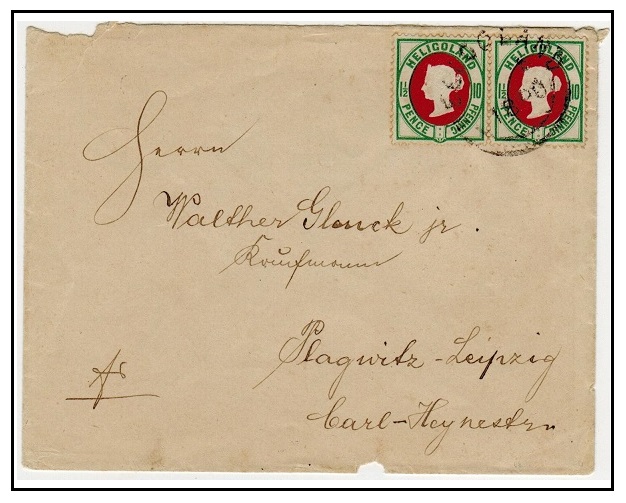 HELIGOLAND
1½ 10
PENCE PFENNIG
HELIGOLAND
10
PENCE PFENNIG
Herrn
Walther Glauck jr.
Kaufmann
Plagwitz-Leipzig
Carl-Heynestr.